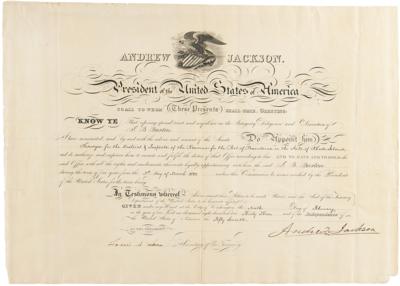 ANDREW JACKSON.
President of the United States of America
TO ALL TO WHOM (These Presents) SHALL COME, GREETING:
KNOW YE That reposing special trust and confidence in the Integrity Diligence and Discretion of
I have nominated and by and with the advice and consent of the Senate Do Appoint him
Surveyor for the District & Inspector of the Revenue for the Port of in the State of Rhode Island
and do authorize and empower him to execute and fulfil the duties of that Office according to law AND TO HAVE AND TO HOLD the
said Office with all the rights and emoluments thereunto legally appertaining unto him the said
during the term of four years from the day of March unless this Commission be sooner revoked by the President
of the United States for the time being.
In Testimony whereof I have caused these Letters to be made Patent and the Seal of the Treasury
Department of the United States to be hereunto affixed
GIVEN under my Hand at the City of Washington the Ninth Day of
in the year of our Lord one thousand eight hundred and Thirty Three and of the Independence of
the United States of America the Fifty Seventh
BY THE PRESIDENT
Andrew Jackson
Secretary of the Treasury